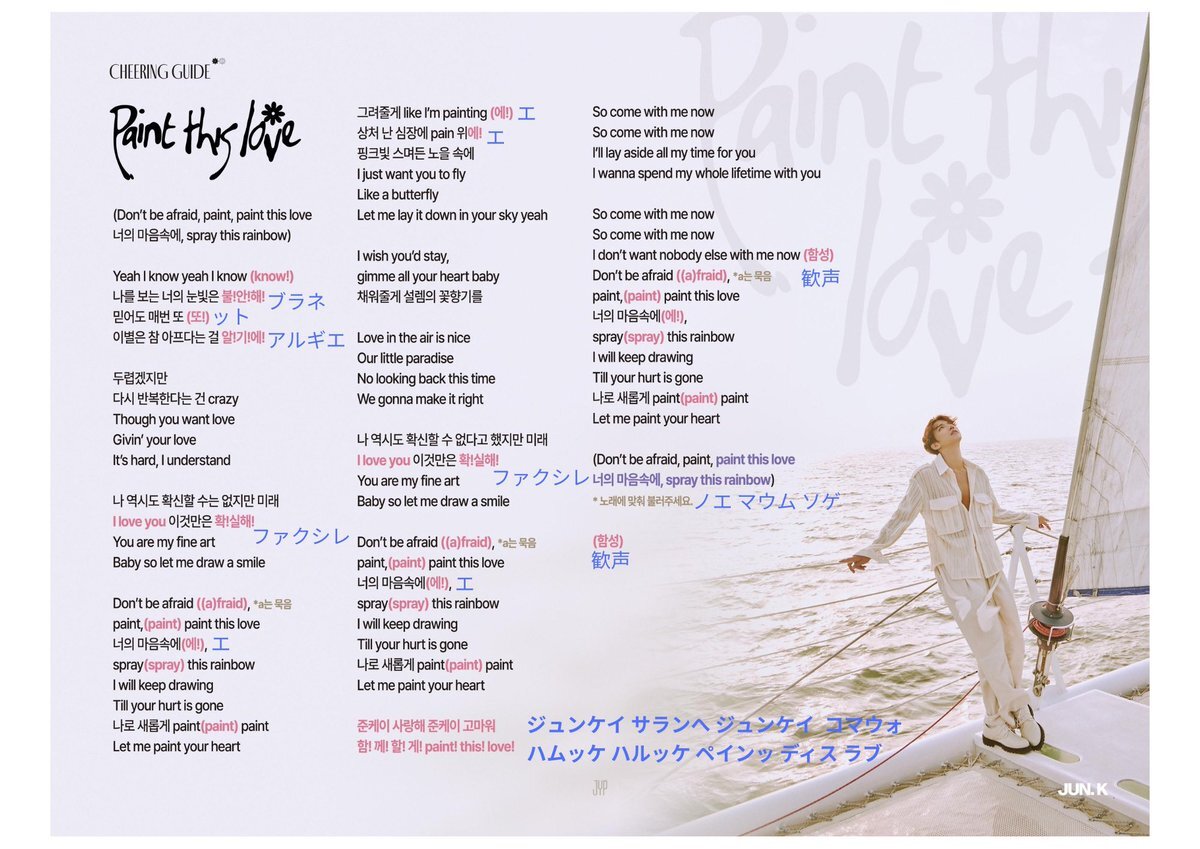 CHEERING GUIDE
Paint this love
(Don't be afraid, paint, paint this love
너의 마음속에, spray this rainbow)
Yeah I know yeah I know (know!)
나를 보는 너의 눈빛은 불!안!해! ブラネ
믿어도 매번 또 (또!) ット
이별은 참 아프다는 걸 알!기!에! アルギエ
두렵겠지만
다시 반복한다는 건 crazy
Though you want love
Givin' your love
It's hard, I understand
나 역시도 확신할 수는 없지만 미래
I love you 이것만은 확!실해!
ファクシレ
You are my fine art
Baby so let me draw a smile
Don't be afraid ((a)fraid), *a는 묵음
paint,(paint) paint this love
너의 마음속에(에!), エ
spray(spray) this rainbow
I will keep drawing
Till your hurt is gone
나로 새롭게 paint(paint) paint
Let me paint your heart
그려줄게 like I'm painting (에!) エ
상처 난 심장에 pain 위에! エ
핑크빛 스며든 노을 속에
I just want you to fly
Like a butterfly
Let me lay it down in your sky yeah
I wish you'd stay,
gimme all your heart baby
채워줄게 설렘의 꽃향기를
Love in the air is nice
Our little paradise
No looking back this time
We gonna make it right
나 역시도 확신할 수 없다고 했지만 미래
I love you 이것만은 확!실해!
You are my fine art ファクシレ
Baby so let me draw a smile
Don't be afraid ((a)fraid), *a는 묵음
paint,(paint) paint this love
너의 마음속에(에!), エ
spray(spray) this rainbow
I will keep drawing
Till your hurt is gone
나로 새롭게 paint(paint) paint
Let me paint your heart
준케이 사랑해 준케이 고마워 ジュンケイ サランヘ ジュンケイ コマウォ
함! 께! 할! 게! paint! this! love! ハムッケ ハルッケ ペインッ ディス ラブ
So come with me now
So come with me now
I'll lay aside all my time for you
I wanna spend my whole lifetime with you
So come with me now
So come with me now
I don't want nobody else with me now (함성)
歓声
Don't be afraid ((a)fraid), *a는 묵음
paint,(paint) paint this love
너의 마음속에(에!),
spray(spray) this rainbow
I will keep drawing
Till your hurt is gone
나로 새롭게 paint(paint) paint
Let me paint your heart
(Don't be afraid, paint, paint this love
너의 마음속에, spray this rainbow)
* 노래에 맞춰 불러주세요. ノエ マウム ソゲ
(함성)
歓声
Paint this love
JYP
JUN. K